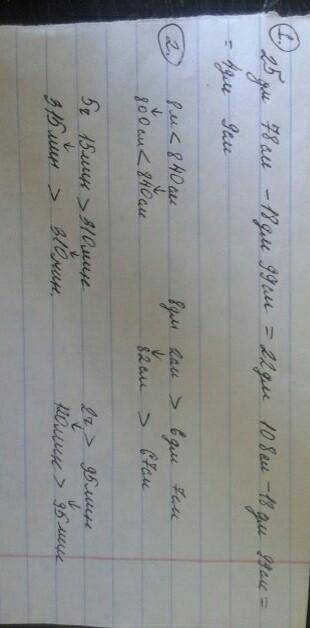 1. 25 дм 78 см - 18 дм 99 см = 22 дм 108 см - 18 дм 99 см =
= 4 дм 9 см
2. 8м < 840 см 8 дм 2 см > 6 дм 7 см
800 см < 840 см 82 см > 67 см
5ч 15 мин > 310 мин 2ч > 95 мин
315 мин > 310 мин. 120 мин > 95 мин